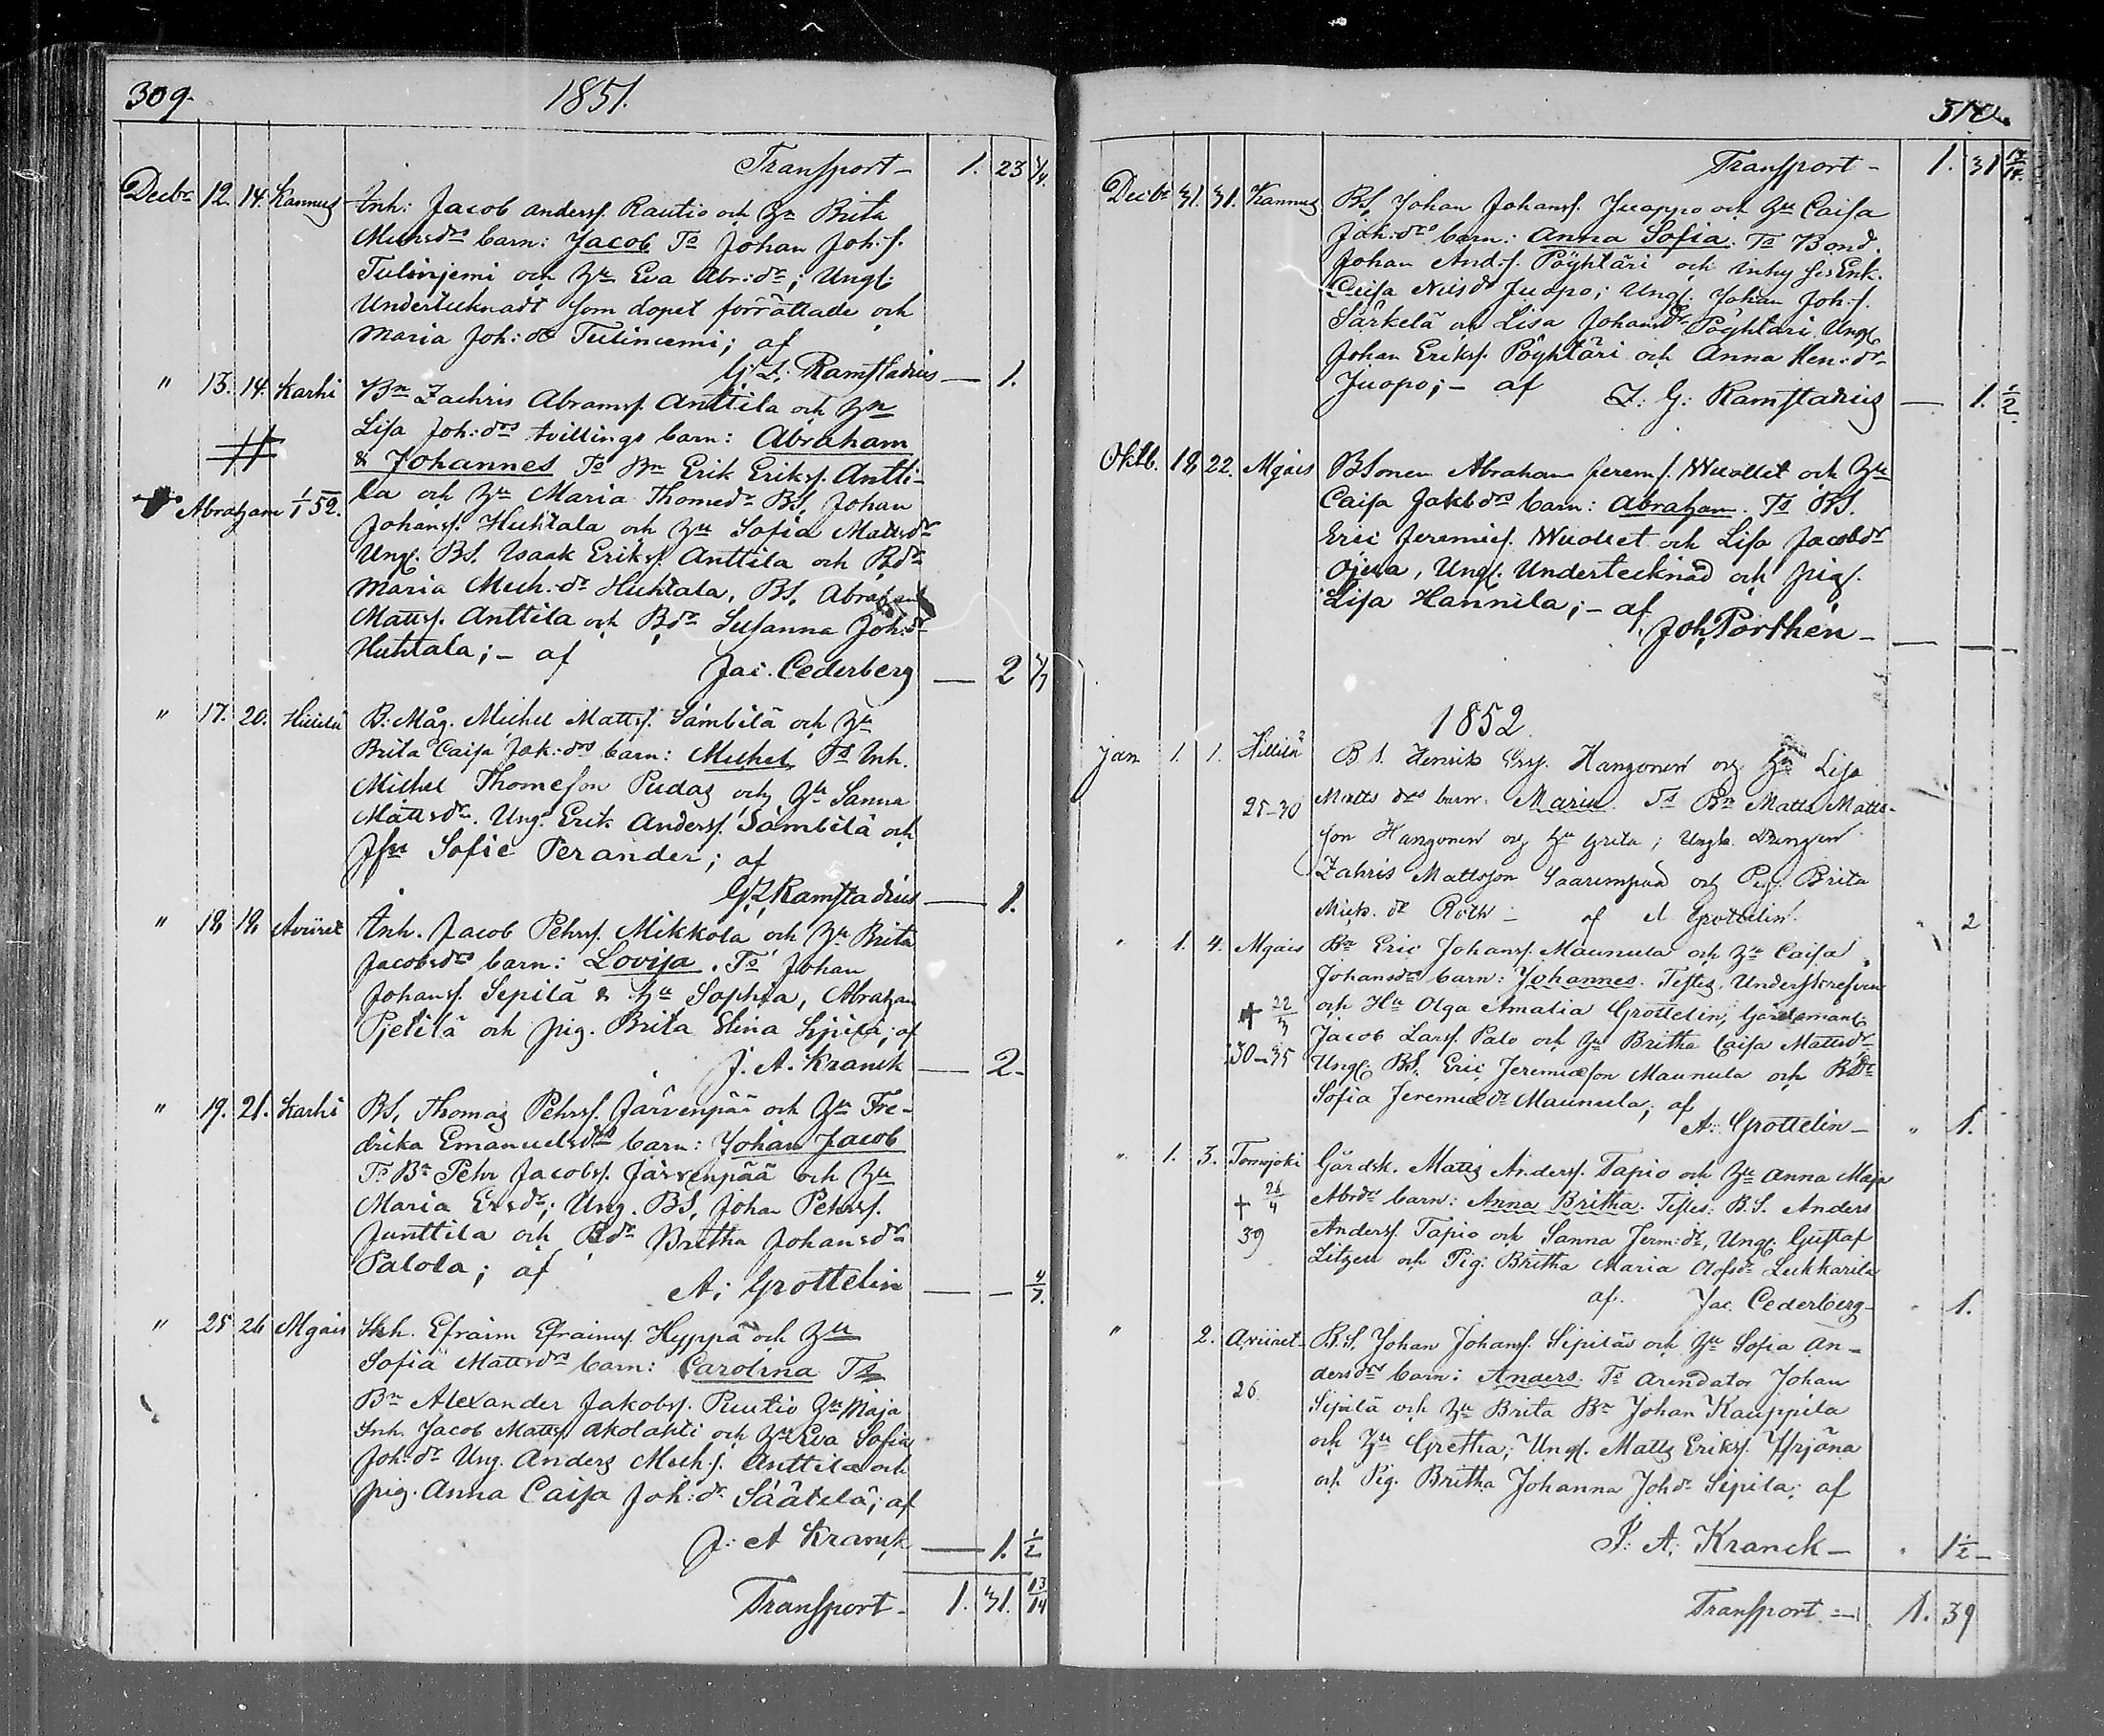 309.
1851.
Transport - 1. 23 3/4.
Decbr 12. 14. Kannus Inh: Jacob Anderss. Rautio och Hu Brita
Michsdrs barn: Jacob Ts Johan Joh: s.
Tulinjemi och Hu Eva Abr: dr; Ungl.
Undertecknadt som dopet förrättade och
Maria Joh: dr Tuliniemi; af
G. L. Ramstadius — 1.
" 13. 14. Karhi Bn Zachris Abramss. Anttila och Hu
Lisa Joh: drs tvillings barn: Abraham
& Johannes Ts Bn Erik Erikss. Antti-
Abraham 1/1 52. la och Hu Maria Thomedr BS. Johan
Johanss. Huhtala och Hu Sofia Mattsdr
Ungl. BS. Isaak Erikss. Anttila och Bdr
Maria Mich. dr Huhtala, BS. Abraham
Mattss. Anttila och Bdr Susanna Joh: dr
Huhtala; - af Jac. Cederberg — 2
" 17. 20. B: Måg. Michel Mattss. Sämbilä och Hu
Brita Caisa Jak: drs barn: Michel Ts Inh.
Michel Thomeson Pudas och Hu Sanna
Mattsdr. Ung. Erik Anderss. Sämbilä och
Sofie Perander; af
G. L. Ramstadius — 1.
" 18. 19. Aviiret Inh. Jacob Pehrss. Mikkola och Hu Brita
Jacobsdrs barn: Lovisa. Ts Johan
Johanss. Sepilä & hu Sophia, Abraham
Pjetilä och pig. Brita Elina Sipilä; af
J. A. Kranck — 2-
" 19. 21. Karhi BS. Thomas Pehrss. Järvenpää och Hu Fre-
drika Emanuelsdrs barn: Johan Jacob
Ts Bn Pehr Jacobss. Järvenpää och Hu
Maria Ersdr; Ung. BS. Johan Pehrss.
Junttila och Bdr Britha Johansdr
Palola; af
A: Grottelin — — 4/7.
" 25 26 Mgais Inh. Efraim Efraimss. Hyppä och Hu
Sofia Mattsdrs barn: Carolina Ts
Bn Alexander Jakobss. Ruutio Hu Maja
Inh. Jacob Mattss. Akolahti och Hu Eva Sofia
Joh: dr Ung. Anders Mich: s. Anttila och
pig. Anna Caisa Joh: dr Säätelä; af
J: A Kranck — 1. 1/2
Transport - 1. 31. 13/14
310.
Transport - 1. 31 13/14.
Decbr 31. 31. Kannus BS. Johan Johanss. Juoppo och Hu Caisa
Joh: drs barn: Anna Sofia. Ts Bond.
Johan And: s. Pöyhtäri och Enk.
Caisa Nilsdr Juopo; Ungl. Johan Joh: s.
Särkelä och Lisa Johansdr Pöyhtäri Ungl
Johan Erikss. Pöyhtäri och Anna Hen: dr
Juopo; - af L: G: Ramstadius — 1. 1/2
Oktb. 18. 22. Mgais BSonen Abraham Jerem s. Wuollet och Hu
Caisa Jakbdrs barn: Abraham. Ts BS.
Eric Jeremies. Wuollet och Lisa Jacobdr
Ojua, Ungl. Undertecknad och pig.
Lisa Hannila; - af
Joh. Porthen - — — -
1852.
Jan 1. 1. Hillilä B s. Henrik Erss. Hanzonen och Hu Lisa
25-30 Matts drs barn: Maria. Ts Bn Matts Matts-
son Hanzonen och Hu Greta; Ungk. Drengen
Zahris Mattsson Saarempää och Pig. Brita
Mick. dr Roth - af A Grottelin. " 2
" 1. 4. Mgais Bn Eric Johanss. Maunula och Hu Caisa
Johansdrs barn: Johannes. Testes. Underskrefven
+ 22/3 och Hu Olga Amalia Grottelin, Gårdsmans
Jacob Larss. Palo och Hu Britha Caisa Mattsdr
30-35 Ungl. BS. Eric Jeremiæson Maunula och Bdr
Sofia Jeremiædr Maunula; af
A: Grottelin - " 1.
" 1. 3. Tomujoki Gårdsk. Matts Anderss. Tapio och Hu Anna Maja
+ 26/4 Abrdrs barn: Anna Britha. Testes: B.S. Anders
39 Anderss. Tapio och Sanna Jerm: dr, Ungl. Gustaf
Litzen och Pig: Britha Maria Olofsdr Lukkarila
af. Jac. Cederberg - " 1.
" 2. Aviiret - B.S. Johan Johanss. Sipilä och Hu Sofia An-
dersdrs barn: Anders. Ts Arendator Johan
26. Sipilä och Hu Brita Bn Johan Kauppila
och Hu Gretha; Ungl. Matts Erikss. Yrjänä
och Pig. Britha Johanna Johdr Sipila; af
J: A: Kranck - " 1 1/2 -
Transport = 1. 39